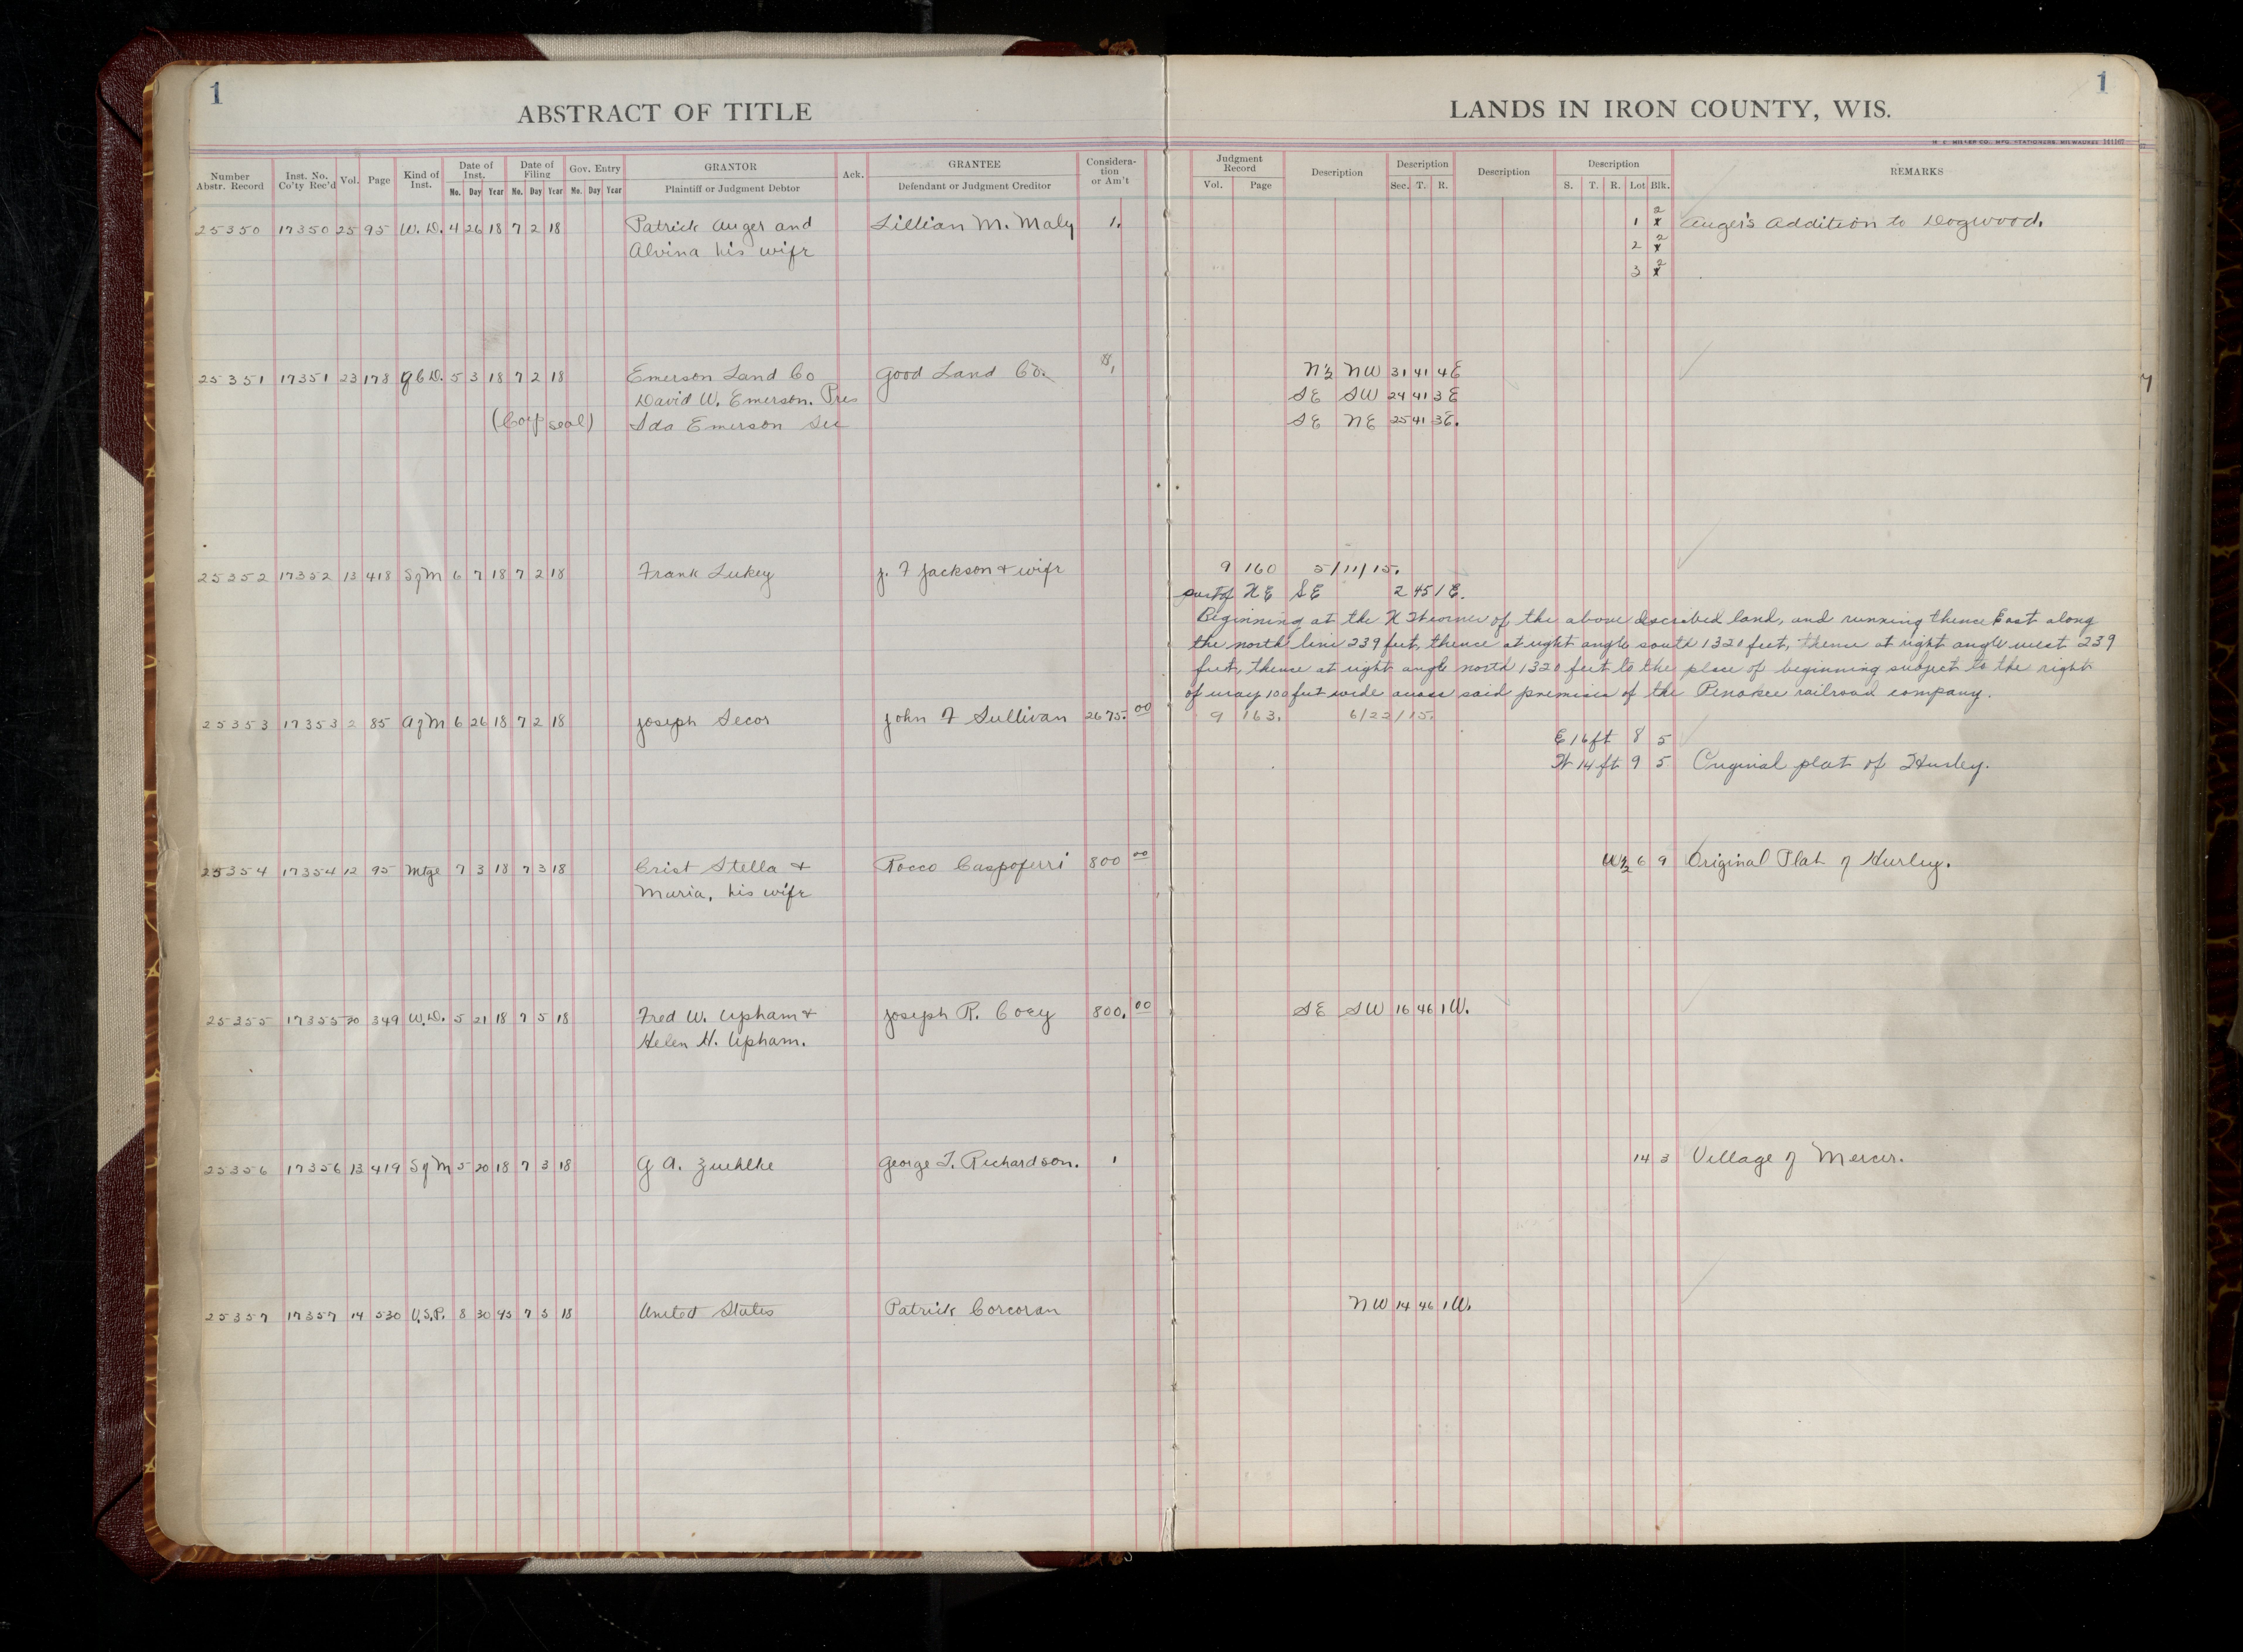 1
ABSTRACT OF TITLE
LANDS IN IRON COUNTY, WIS.
1
Number Abstr. Record Inst. No. Co'ty Rec'd Vol. Page Kind of Inst. Date of Inst. Mo. Day Year Date of Filing Mo. Day Year Gov. Entry Mo. Day Year GRANTOR Plaintiff or Judgment Debtor Ack. GRANTEE Defendant or Judgment Creditor Considera-tion or Am't Judgment Record Vol. Page Description Description Sec. T. R. Description Description S. T. R. Lot Blk. REMARKS
25350 17350 25 95 W. D. 4 26 18 7 2 18 Patrick Auger and Lillian M. Maly 1. 1 2 Auger's Addition to Dogwood.
Alvina his wife 2 2
3 2
25351 17351 23 178 Q C D. 5 3 18 7 2 18 Emerson Land Co Good Land Co. N½ NW 31 41 4E
David W. Emerson. Pres SE SW 24 41 3E
(Corp seal) Ida Emerson Sec SE NE 25 41 3E.
25352 17352 13 418 S of M 6 7 18 7 2 18 Frank Lukey J. F Jackson & wife 9 160 5/11/15.
part of NE SE 2 45 1 E.
Beginning at the N W corner of the above described land, and running thence East along
the north line 239 feet, thence at right angle south 1320 feet, thence at right angle west 239
feet, thence at right angle north 1320 feet to the place of beginning subject to the right
of way 100 feet wide across said premises of the Penokee railroad company.
25353 17353 2 85 A of M 6 26 18 7 2 18 Joseph Secor John F Sullivan 2675.00 9 163. 6/22/15.
E 16 ft 8 5
W 14 ft 9 5 Original plat of Hurley.
25354 17354 12 95 Mtge 7 3 18 7 3 18 Crist Stella & Rocco Caspoferri 800 00 W½ 6 9 Original Plat of Hurley.
Maria, his wife
25355 17355 20 349 W.D. 5 21 18 7 5 18 Fred W. Upham & Joseph R. Coey 800.00 SE SW 16 46 1W.
Helen H. Upham.
25356 17356 13 419 S of M 5 20 18 7 3 18 G A. Zuehlke George T. Richardson. 1 14 3 Village of Mercer.
25357 17357 14 530 U.S.P. 8 30 95 7 5 18 United States Patrick Corcoran NW 14 46 1W.